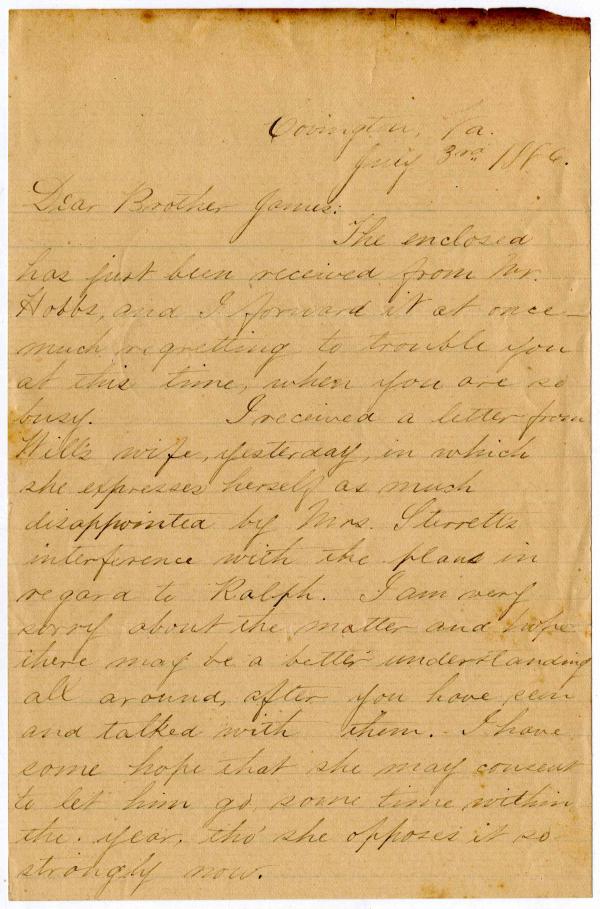 Covington, Va.
July 3rd 1886.
Dear Brother James:
The enclosed
has just been received from Mr.
Hobbs, and I forward it at once—
much regretting to trouble you
at this time, when you are so
busy. I received a letter from
Will's wife, yesterday, in which
she expresses herself as much
disappointed by Mrs. Sterrett's
interference with the plans in
regard to Ralph. I am very
sorry about the matter and hope
there may be a better understanding
all around, after you have seen
and talked with them. I have
some hope that she may consent
to let him go, some time within
the year, tho' she opposes it so
strongly now.